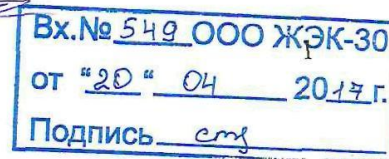 Вх.№ 549 ООО ЖЭК-30
от "20" 04 2017г.
Подпись